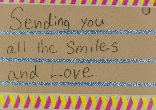 Sending you
all the Smiles
and Love